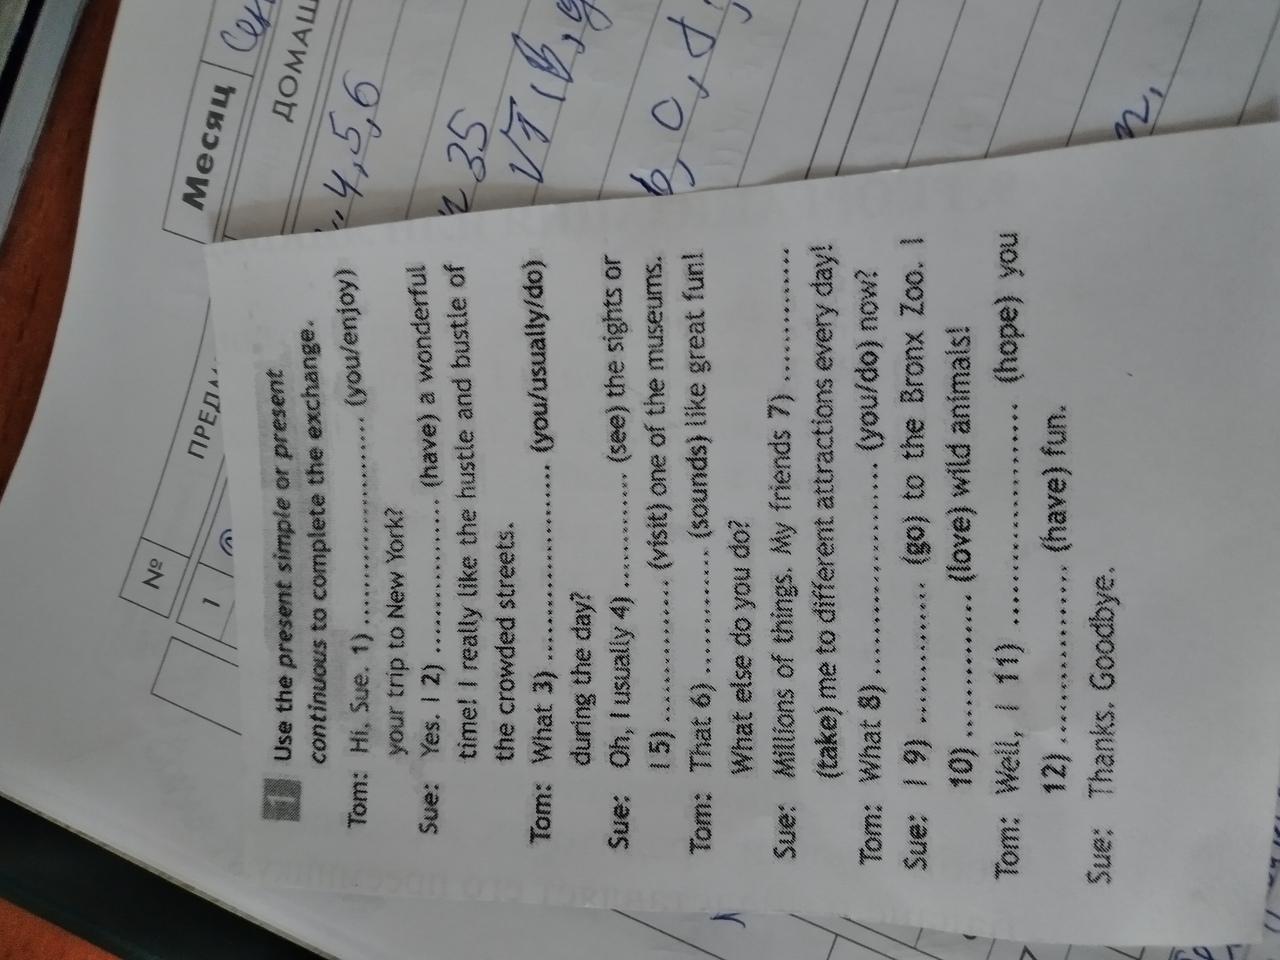 1 Use the present simple or present
continuous to complete the exchange.
Tom: Hi, Sue. 1) .................... (you/enjoy)
your trip to New York?
Sue: Yes. I 2) .................... (have) a wonderful
time! I really like the hustle and bustle of
the crowded streets.
Tom: What 3) .................... (you/usually/do)
during the day?
Sue: Oh, I usually 4) ............ (see) the sights or
I 5) ............... (visit) one of the museums.
Tom: That 6) ............... (sounds) like great fun!
What else do you do?
Sue: Millions of things. My friends 7) ............
(take) me to different attractions every day!
Tom: What 8) .................... (you/do) now?
Sue: I 9) ............... (go) to the Bronx Zoo. I
10) ............... (love) wild animals!
Tom: Well, I 11) .................... (hope) you
12) .................... (have) fun.
Sue: Thanks. Goodbye.
Месяц
№
ДОМАШ
1
4,5,6
35
b, c, d,